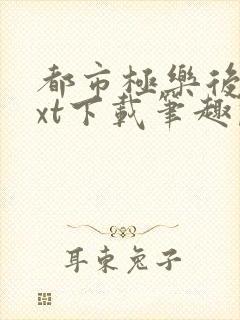 都市極樂後
xt下載筆趣
耳東兔子